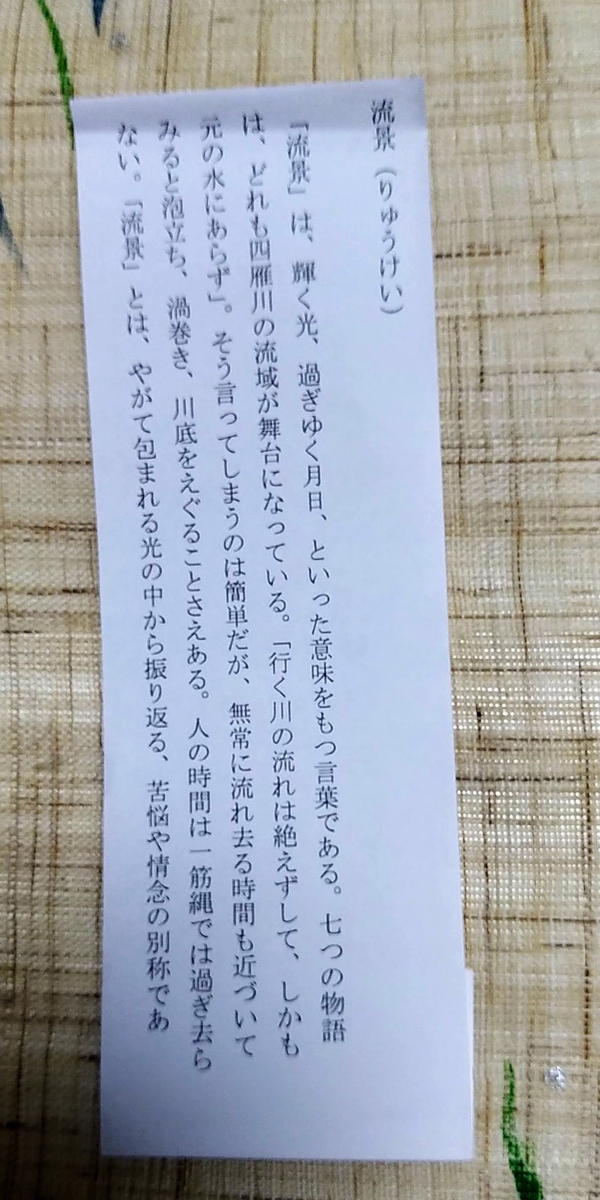 流景（りゅうけい）
「流景」は、輝く光、過ぎゆく月日、といった意味をもつ言葉である。七つの物語
は、どれも四雁川の流域が舞台になっている。「行く川の流れは絶えずして、しかも
元の水にあらず」。そう言ってしまうのは簡単だが、無常に流れ去る時間も近づいて
みると泡立ち、渦巻き、川底をえぐることさえある。人の時間は一筋縄では過ぎ去ら
ない。「流景」とは、やがて包まれる光の中から振り返る、苦悩や情念の別称であ